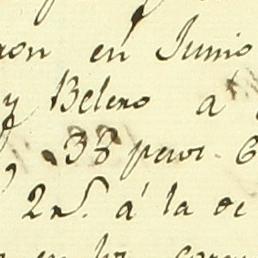 ron en Junio
y Belero a
33 pesos. 6
2 rs. á la de
en los